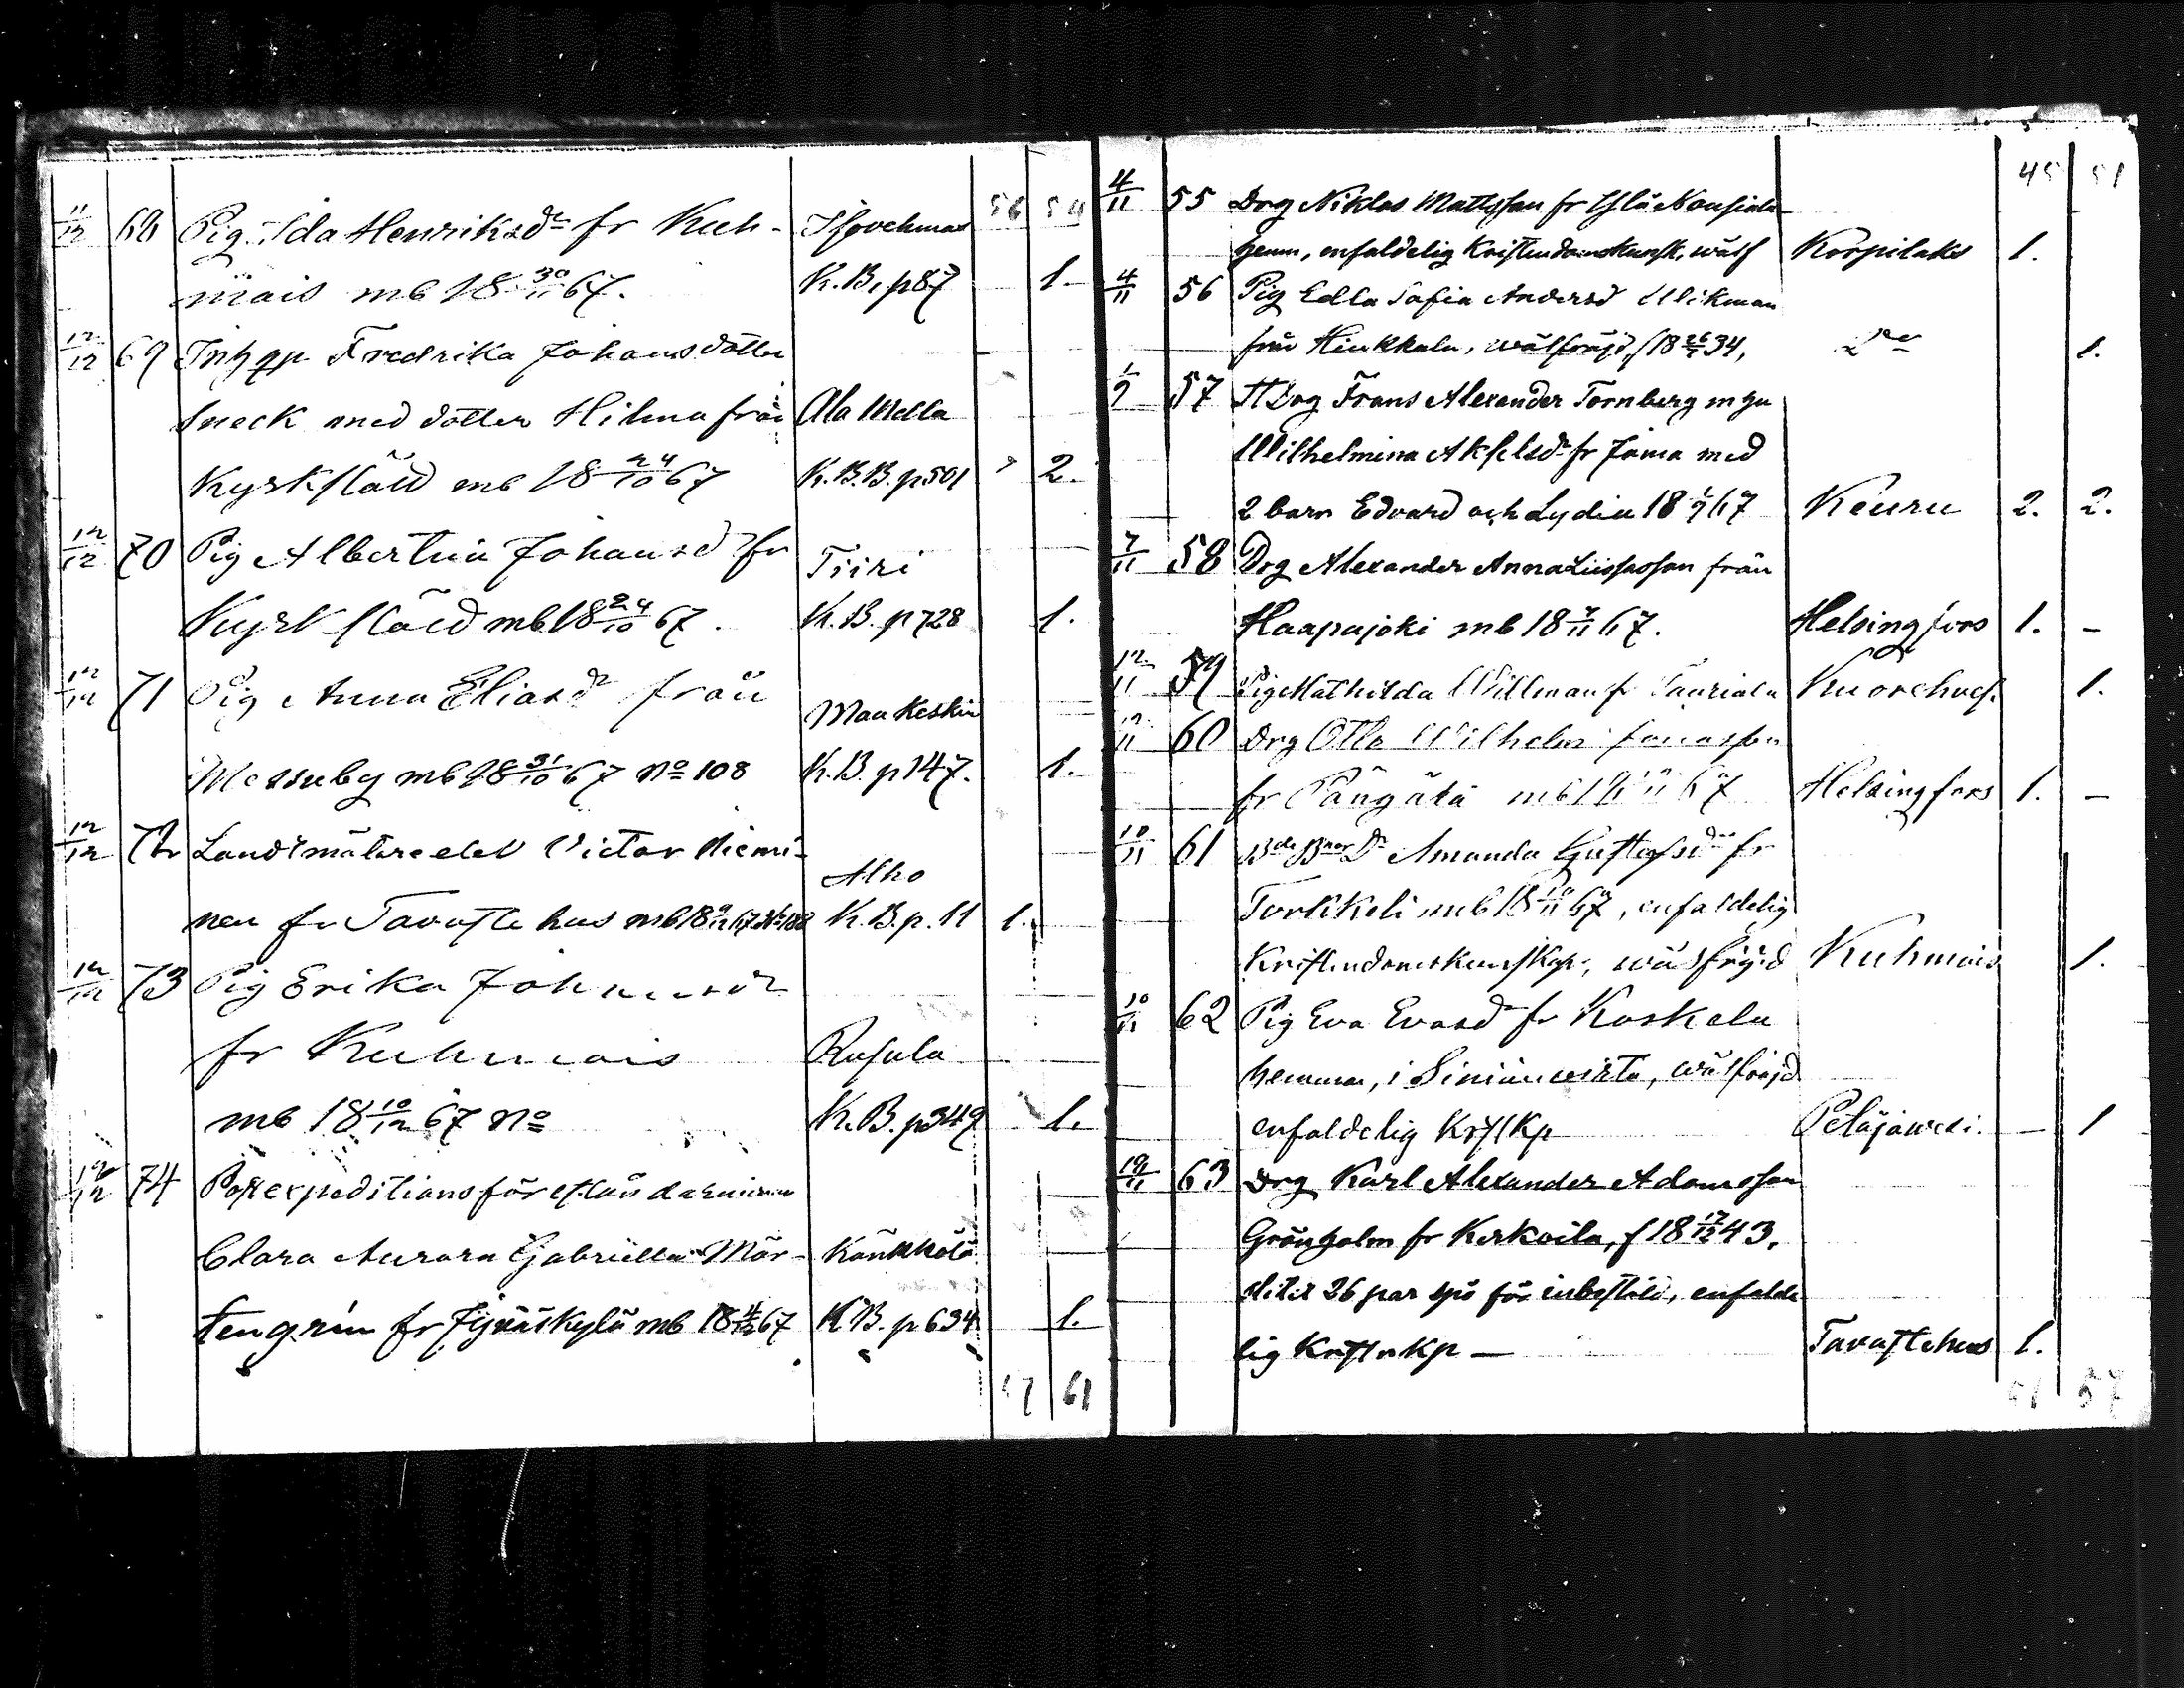 56 54
11/12 68 Pig Ida Henriksdr fr Kuh-
mois mb 18 30/11 67. K.B. p87 1
12/12 69 Inh Fredrika Johansdotter
Sneck med dotter Hilma från Ala Wella
Kyrkslätt mb 18 24/10 67 K.B.B. p501 2.
12/12 70 Pig Albertina Johansdr fr Tiiri
Kyrkslätt mb 18 24/10 67. K.B. p728 1.
12/12 71 Pig Anna Eliasdr från Maakeskin
Messuby mb 18 31/10 67 No 108 K.B. p147. 1.
12/12 72 Landtmätare elev Victor Niemi- Alho
nen fr Tavastehus mb 18 67 K.B. p. 11 1.
12/12 73 Pig Erika Johansdr
fr Kuhmois Rusula
mb 18 10/12 67 No K.B. p349 1.
12/12 74 Postexpeditionsföreståndarinnan
Clara Aurora Gabriella Mår-
tengrén fr Jyväskylä mb 18 4/12 67 K.B. p634 1.
57 61
45 51
4/11 55 Drg Niklas Mattsson fr
hemm, enfaldelig Kristendomskunsk, wälf Korpilaks 1.
4/11 56 Pig Edla Sofia Andersd Wikman
från Hinkkala, wälfräjd, f 18 34, Do 1.
1/9 57 TDrg Frans Alexander Tornberg m hu
Wilhelmina Akselsdr fr Jämsä med
2 barn Edvard och Lydia 18 1/9 67 Keuru 2. 2.
7/11 58 Drg Alexander Annaliisasson från
Haapajoki mb 18 7/11 67. Helsingfors 1. -
12/11 59 Pig Mathilda Willman fr Tauriala Kuorehves. 1.
12/11 60 Drg Otto Wilhelm Jonasson
fr mb 18 67 Helsingfors 1. -
10/11 61 Bde Bnor Dr Amanda Gustafsdr fr
Torkkeli mb 18 10/11 67, enfaldelig
Kristendomskunskap, wälfräjd Kuhmois 1.
10/11 62 Pig Eva Evasdr fr Koskela
hemman, i wälfräjd
enfaldelig Krstkp Petäjävesi. - 1
19/11 63 Drg Karl Alexander Adamsson
Grönholm fr Kerkoila, f 18 17/12 43.
slitit 26 par spö för inbrottstöld, enfalde
lig Krstnkp - Tavastehus 1.
51 57